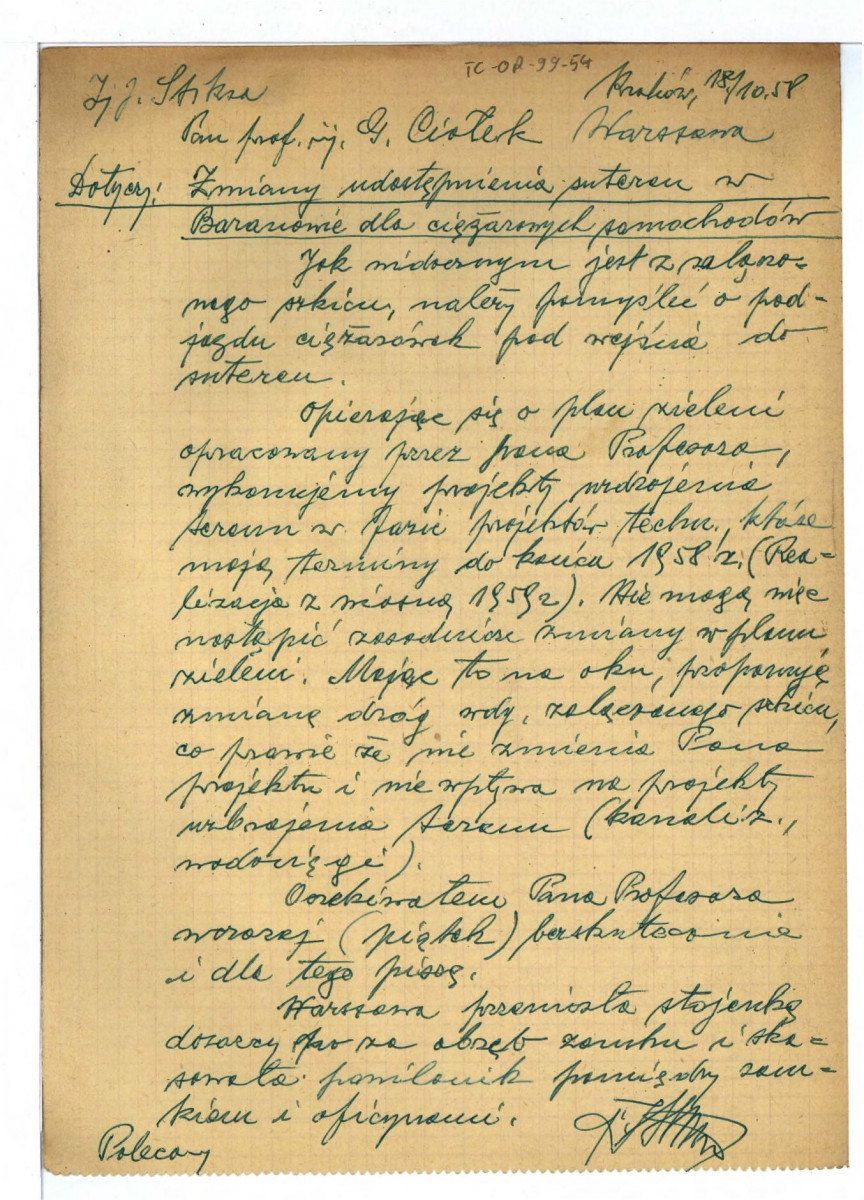 TC-OR-99-54
Kraków, 18/10.58
Iż J. Stiksa
Pan prof. iż. G. Ciołek Warszawa
Dotyczy: Zmiany udostępnienia suteren w
Baranowie dla ciężarowych samochodów
Jak widocznym jest z załączo-
nego szkicu, należy pomyśleć o pod-
jazdu ciężarówek pod wejścia do
suteren.
Opierając się o plan zieleni
opracowany przez Pana Profesora,
wykonujemy projekty uzbrojenia
terenu w fazie projektów techn., które
mają terminy do końca 1958 r. (Rea-
lizacja z wiosną 1959 r). Nie mogą więc
nastąpić zasadnicze zmiany w planu
zieleni. Mając to na oku, proponuję
zmianę dróg wdł. załączonego szkicu,
co prawie że nie zmienia Pana
projektu i nie wpływa na projekty
uzbrojenia terenu (kanaliz.,
wodociągi).
Oczekiwałem Pana Profesora
wczoraj (piątek) bezskutecznie
i dla tego piszę.
Warszawa przeniosła stojenkę
dozorcy za obręb zamku i ska-
sowała pawilonik pomiędzy zam-
kiem i oficynami.
Polecony